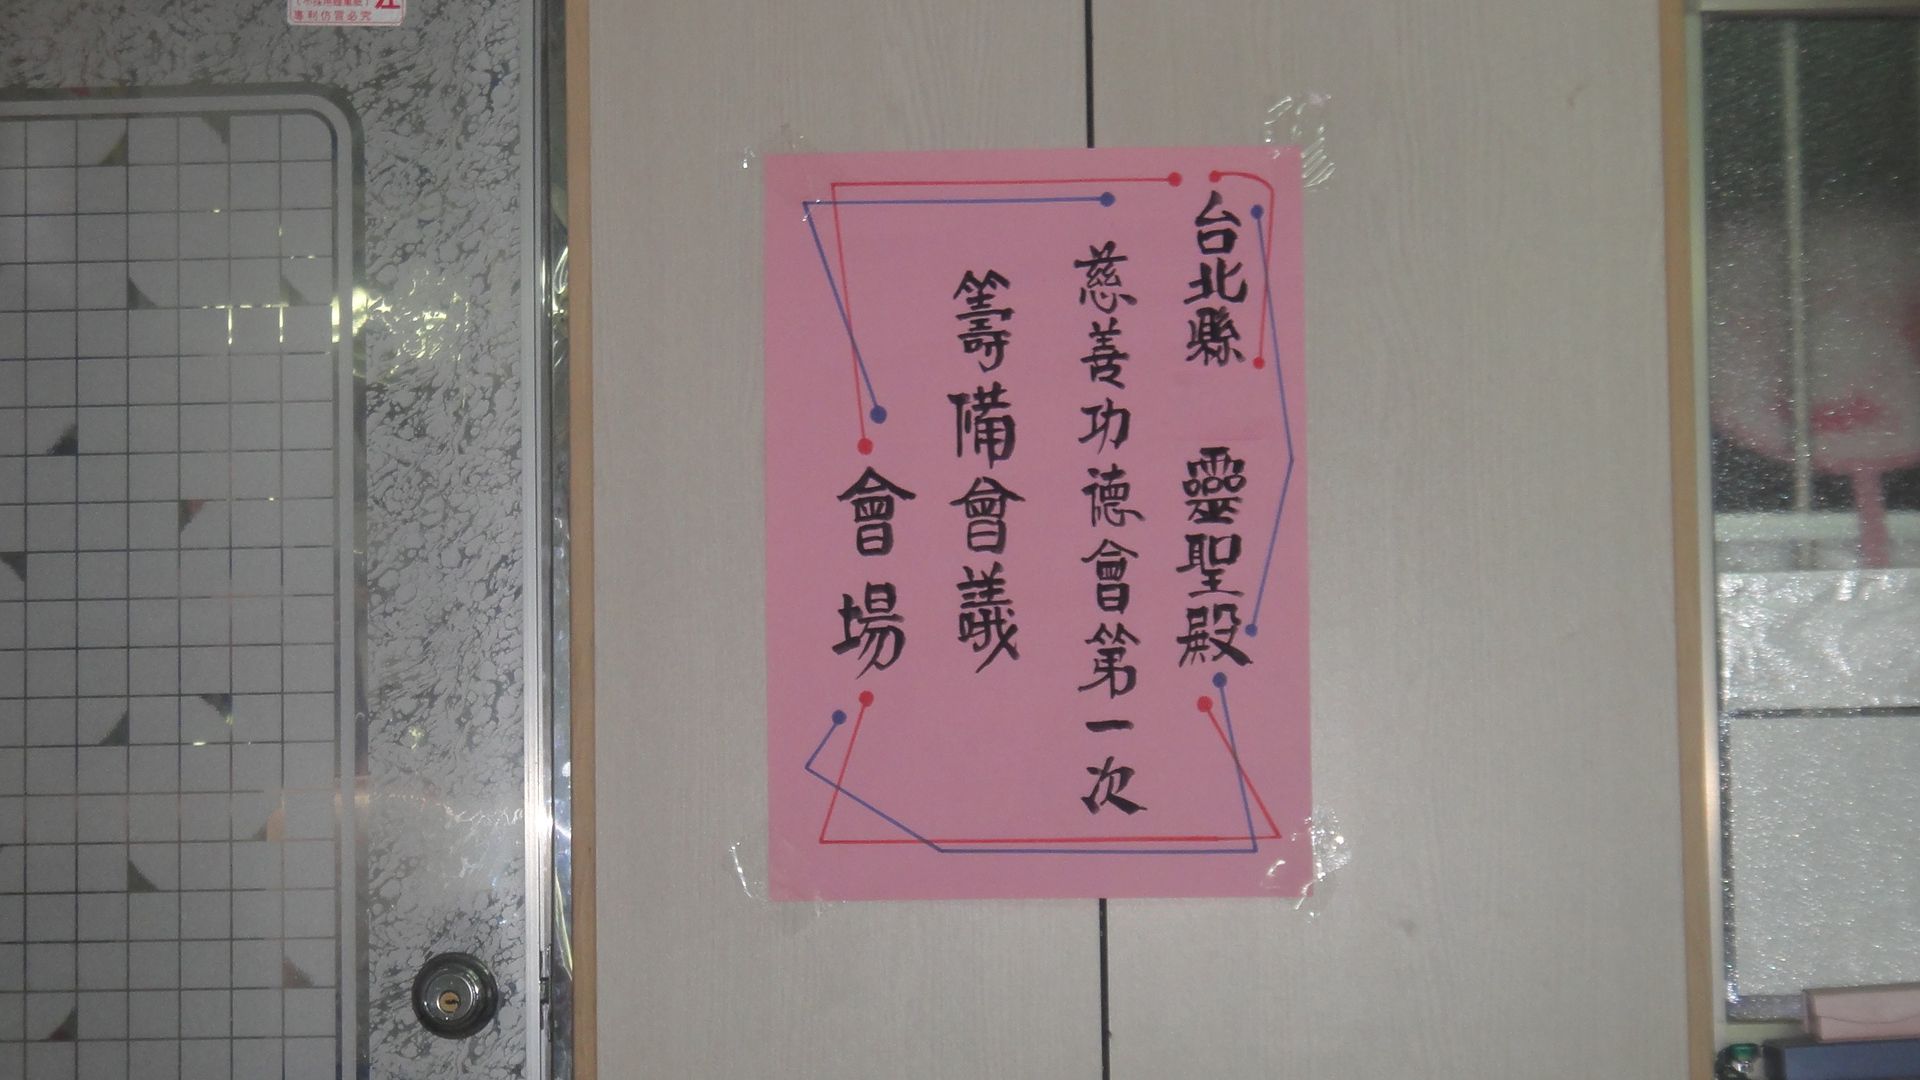 台北縣 靈聖殿
慈善功德會第一次
籌備會議
會場
專利仿冒必究